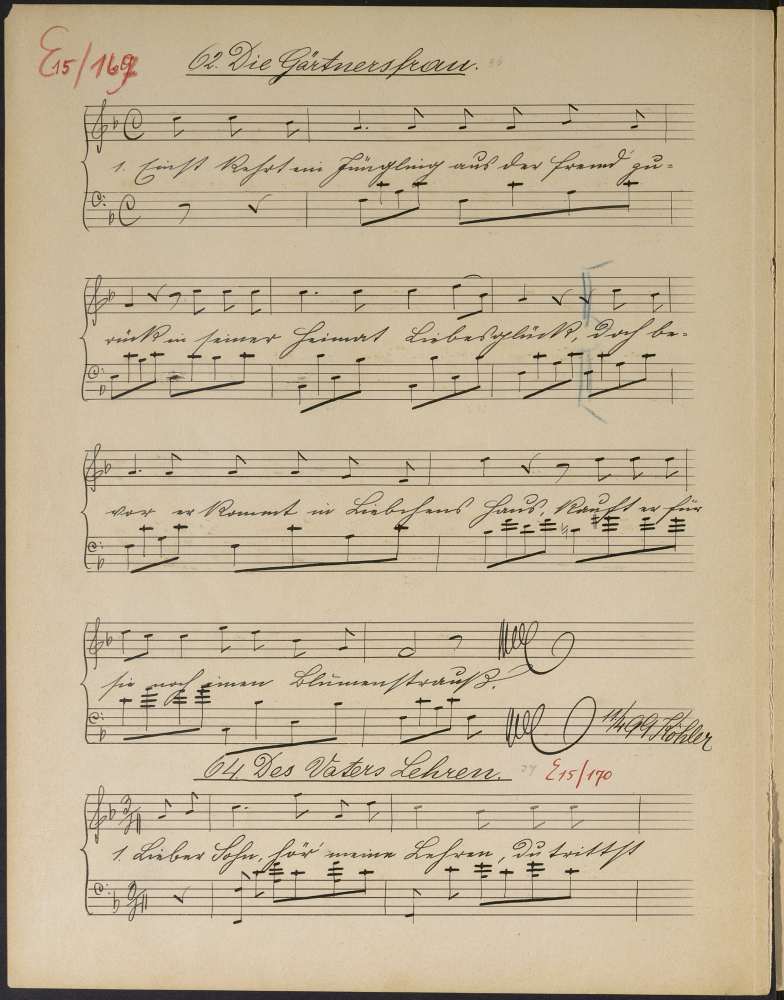 E15/169
62. Die Gärtnersfrau.
1. Einst kehrt ein Jüngling aus der Fremd' zu-
rück in seiner Heimat Liebesglück, doch be-
vor er kommt in Liebchens Haus, kauft er für
sie noch einen Blumenstrauß.
99 Köhler
64. Des Vaters Lehren. E15/170
1. Lieber Sohn, hör' meine Lehren, du trittst